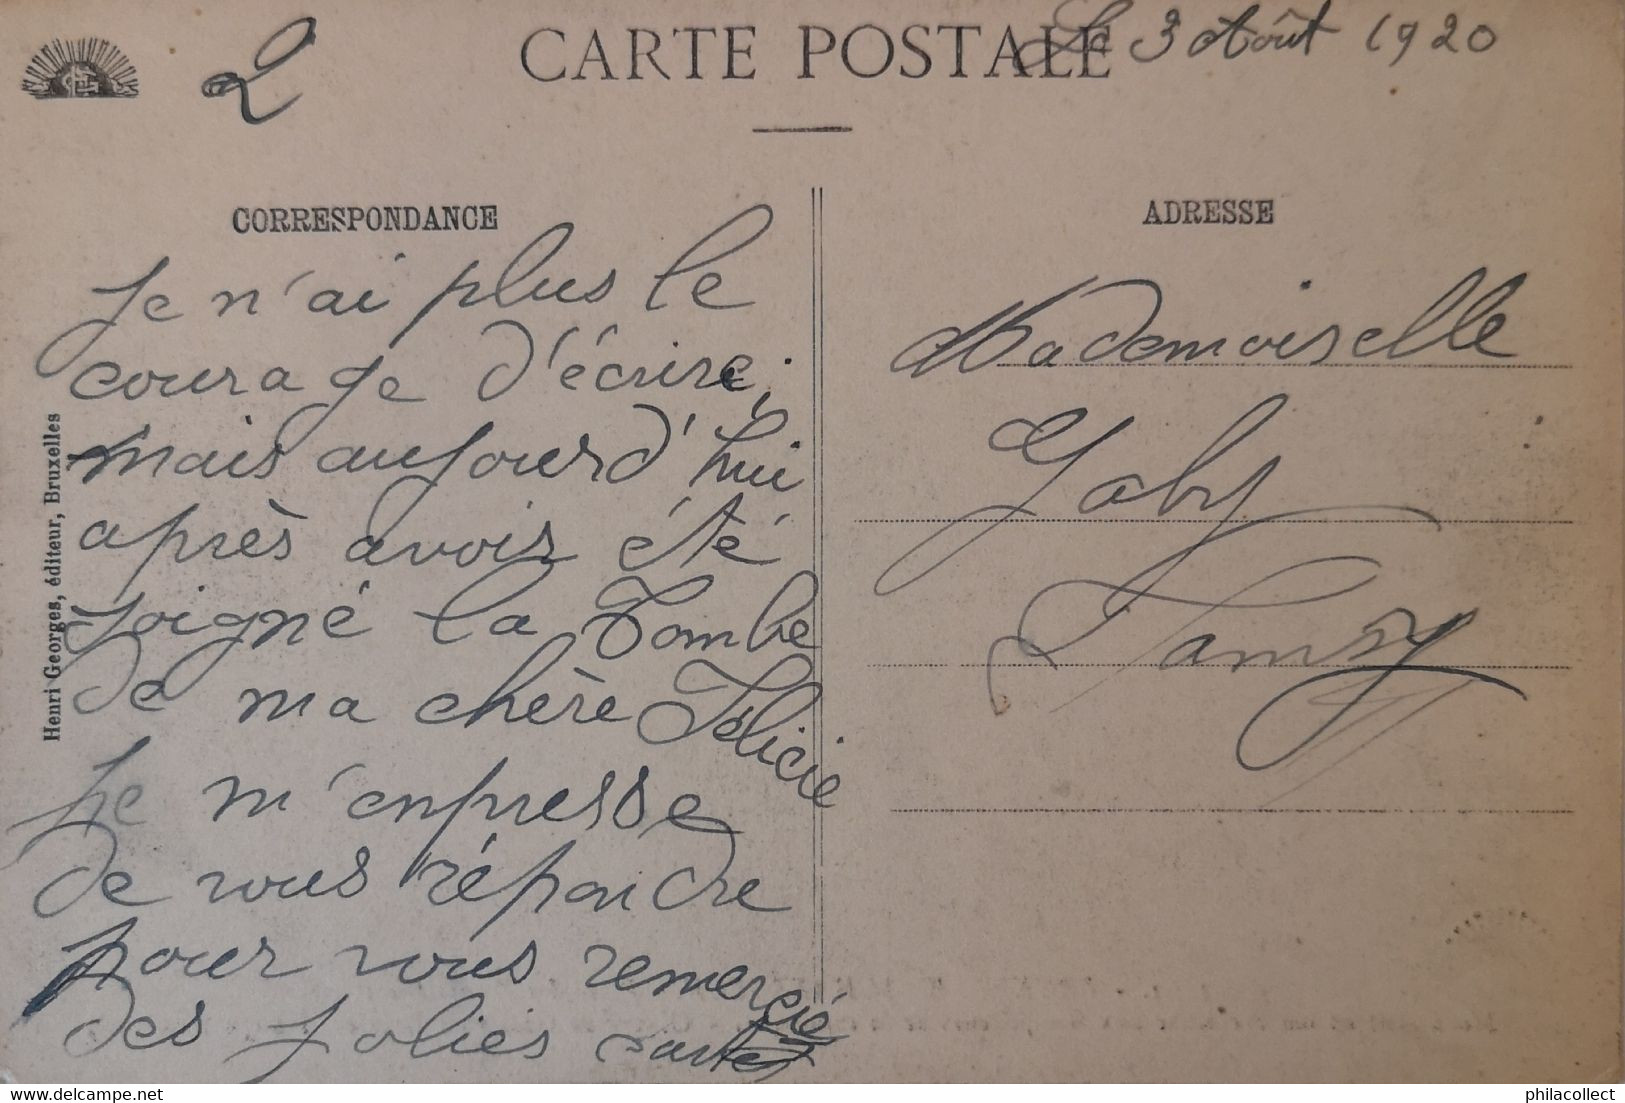 2
CARTE POSTALE
Le 3 Août 1920
CORRESPONDANCE
Je n'ai plus le
courage d'écrire,
mais aujourd'hui
après avoir été
soigné la Tombe
de ma chère Félicie
Je m'enpresse
de vous répondre
pour vous remercié
des Jolies cartes
Henri Georges, éditeur, Bruxelles
ADRESSE
Mademoiselle
Gaby
philacollect